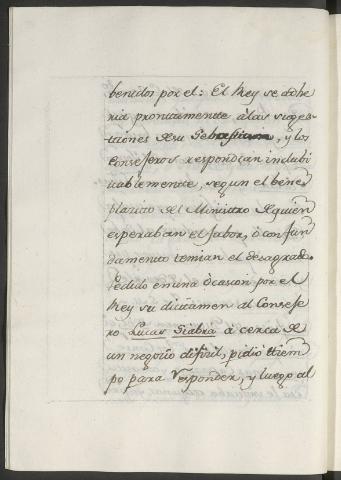 benidos por el: El Rey se adhe
ria prontamente à las suges-
tiones de su Sebastian, y los
Consejeros respondian indubi
tablemente, segun el bene
placito del Ministro de quien
esperaban el fabor, ò con fun
damento temian el desagrado.
Pedido en una òcasion por el
Rey su dictamen al Conseje
ro Lucas Siabra à cerca de
un negocio dificil, pidiò tiem
po para responder, y luego al